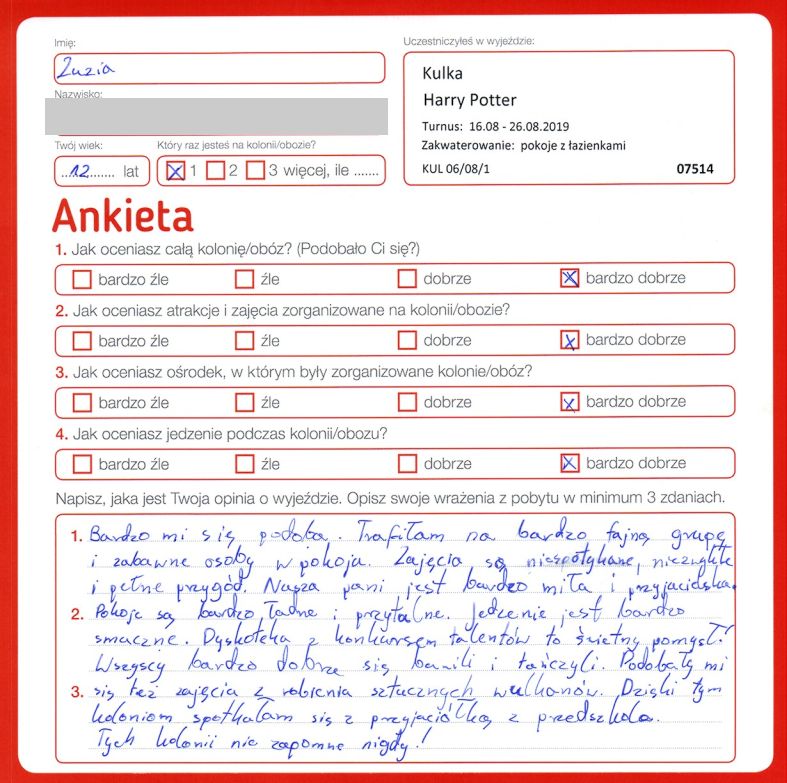 Imię:
Uczestniczyłeś w wyjeździe:
Zuzia
Kulka
Harry Potter
Nazwisko:
Turnus: 16.08 - 26.08.2019
Zakwaterowanie: pokoje z łazienkami
KUL 06/08/1 07514
Twój wiek: Który raz jesteś na kolonii/obozie?
...12....... lat 1 2 3 więcej, ile .......
Ankieta
1. Jak oceniasz całą kolonię/obóz? (Podobało Ci się?)
bardzo źle źle dobrze bardzo dobrze
2. Jak oceniasz atrakcje i zajęcia zorganizowane na kolonii/obozie?
bardzo źle źle dobrze bardzo dobrze
3. Jak oceniasz ośrodek, w którym były zorganizowane kolonie/obóz?
bardzo źle źle dobrze bardzo dobrze
4. Jak oceniasz jedzenie podczas kolonii/obozu?
bardzo źle źle dobrze bardzo dobrze
Napisz, jaka jest Twoja opinia o wyjeździe. Opisz swoje wrażenia z pobytu w minimum 3 zdaniach.
1. Bardzo mi się podoba. Trafiłam na bardzo fajną grupę
i zabawne osoby w pokoju. Zajęcia są niespotykane, niezwykłe
i pełne przygód. Nasza pani jest bardzo miła i przyjacielska.
2. Pokoje są bardzo ładne i przytulne. Jedzenie jest bardzo
smaczne. Dyskoteka z konkursem talentów to świetny pomysł!
Wszyscy bardzo dobrze się bawili i tańczyli. Podobały mi
3. się też zajęcia z robienia sztucznych wulkanów. Dzięki tym
koloniom spotkałam się z przyjaciółką z przedszkola.
Tych kolonii nie zapomnę nigdy!